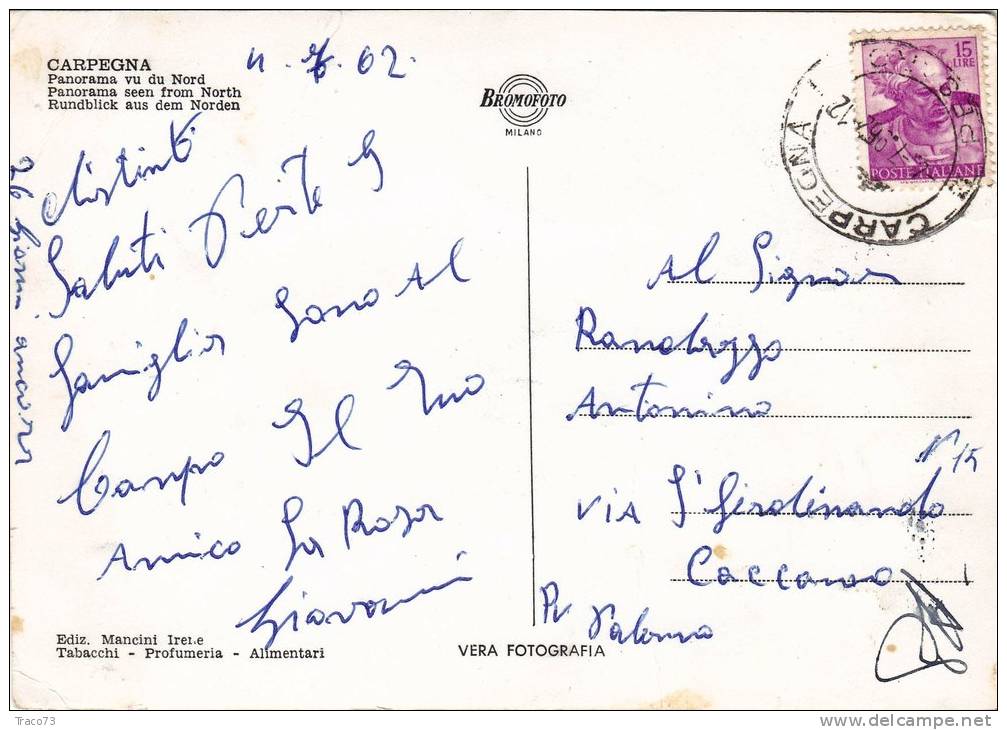 CARPEGNA
Panorama vu du Nord
Panorama seen from North
Rundblick aus dem Norden
4.7.62.
BROMOFOTO
MILANO
15
LIRE
POSTE ITALIANE
CARPEGNA
Distinti
Saluti
Famiglia Sono Al
Campo Il Tuo
Amico La Rosa
Giovanni
26 Giorni ancora
Al Signor
Randazzo
Antonino
N 15
VIA S' Ferdinando
Caccamo
Pr Palermo
Ediz. Mancini Irene
Tabacchi - Profumeria - Alimentari
VERA FOTOGRAFIA
Traco73
delcampe.net